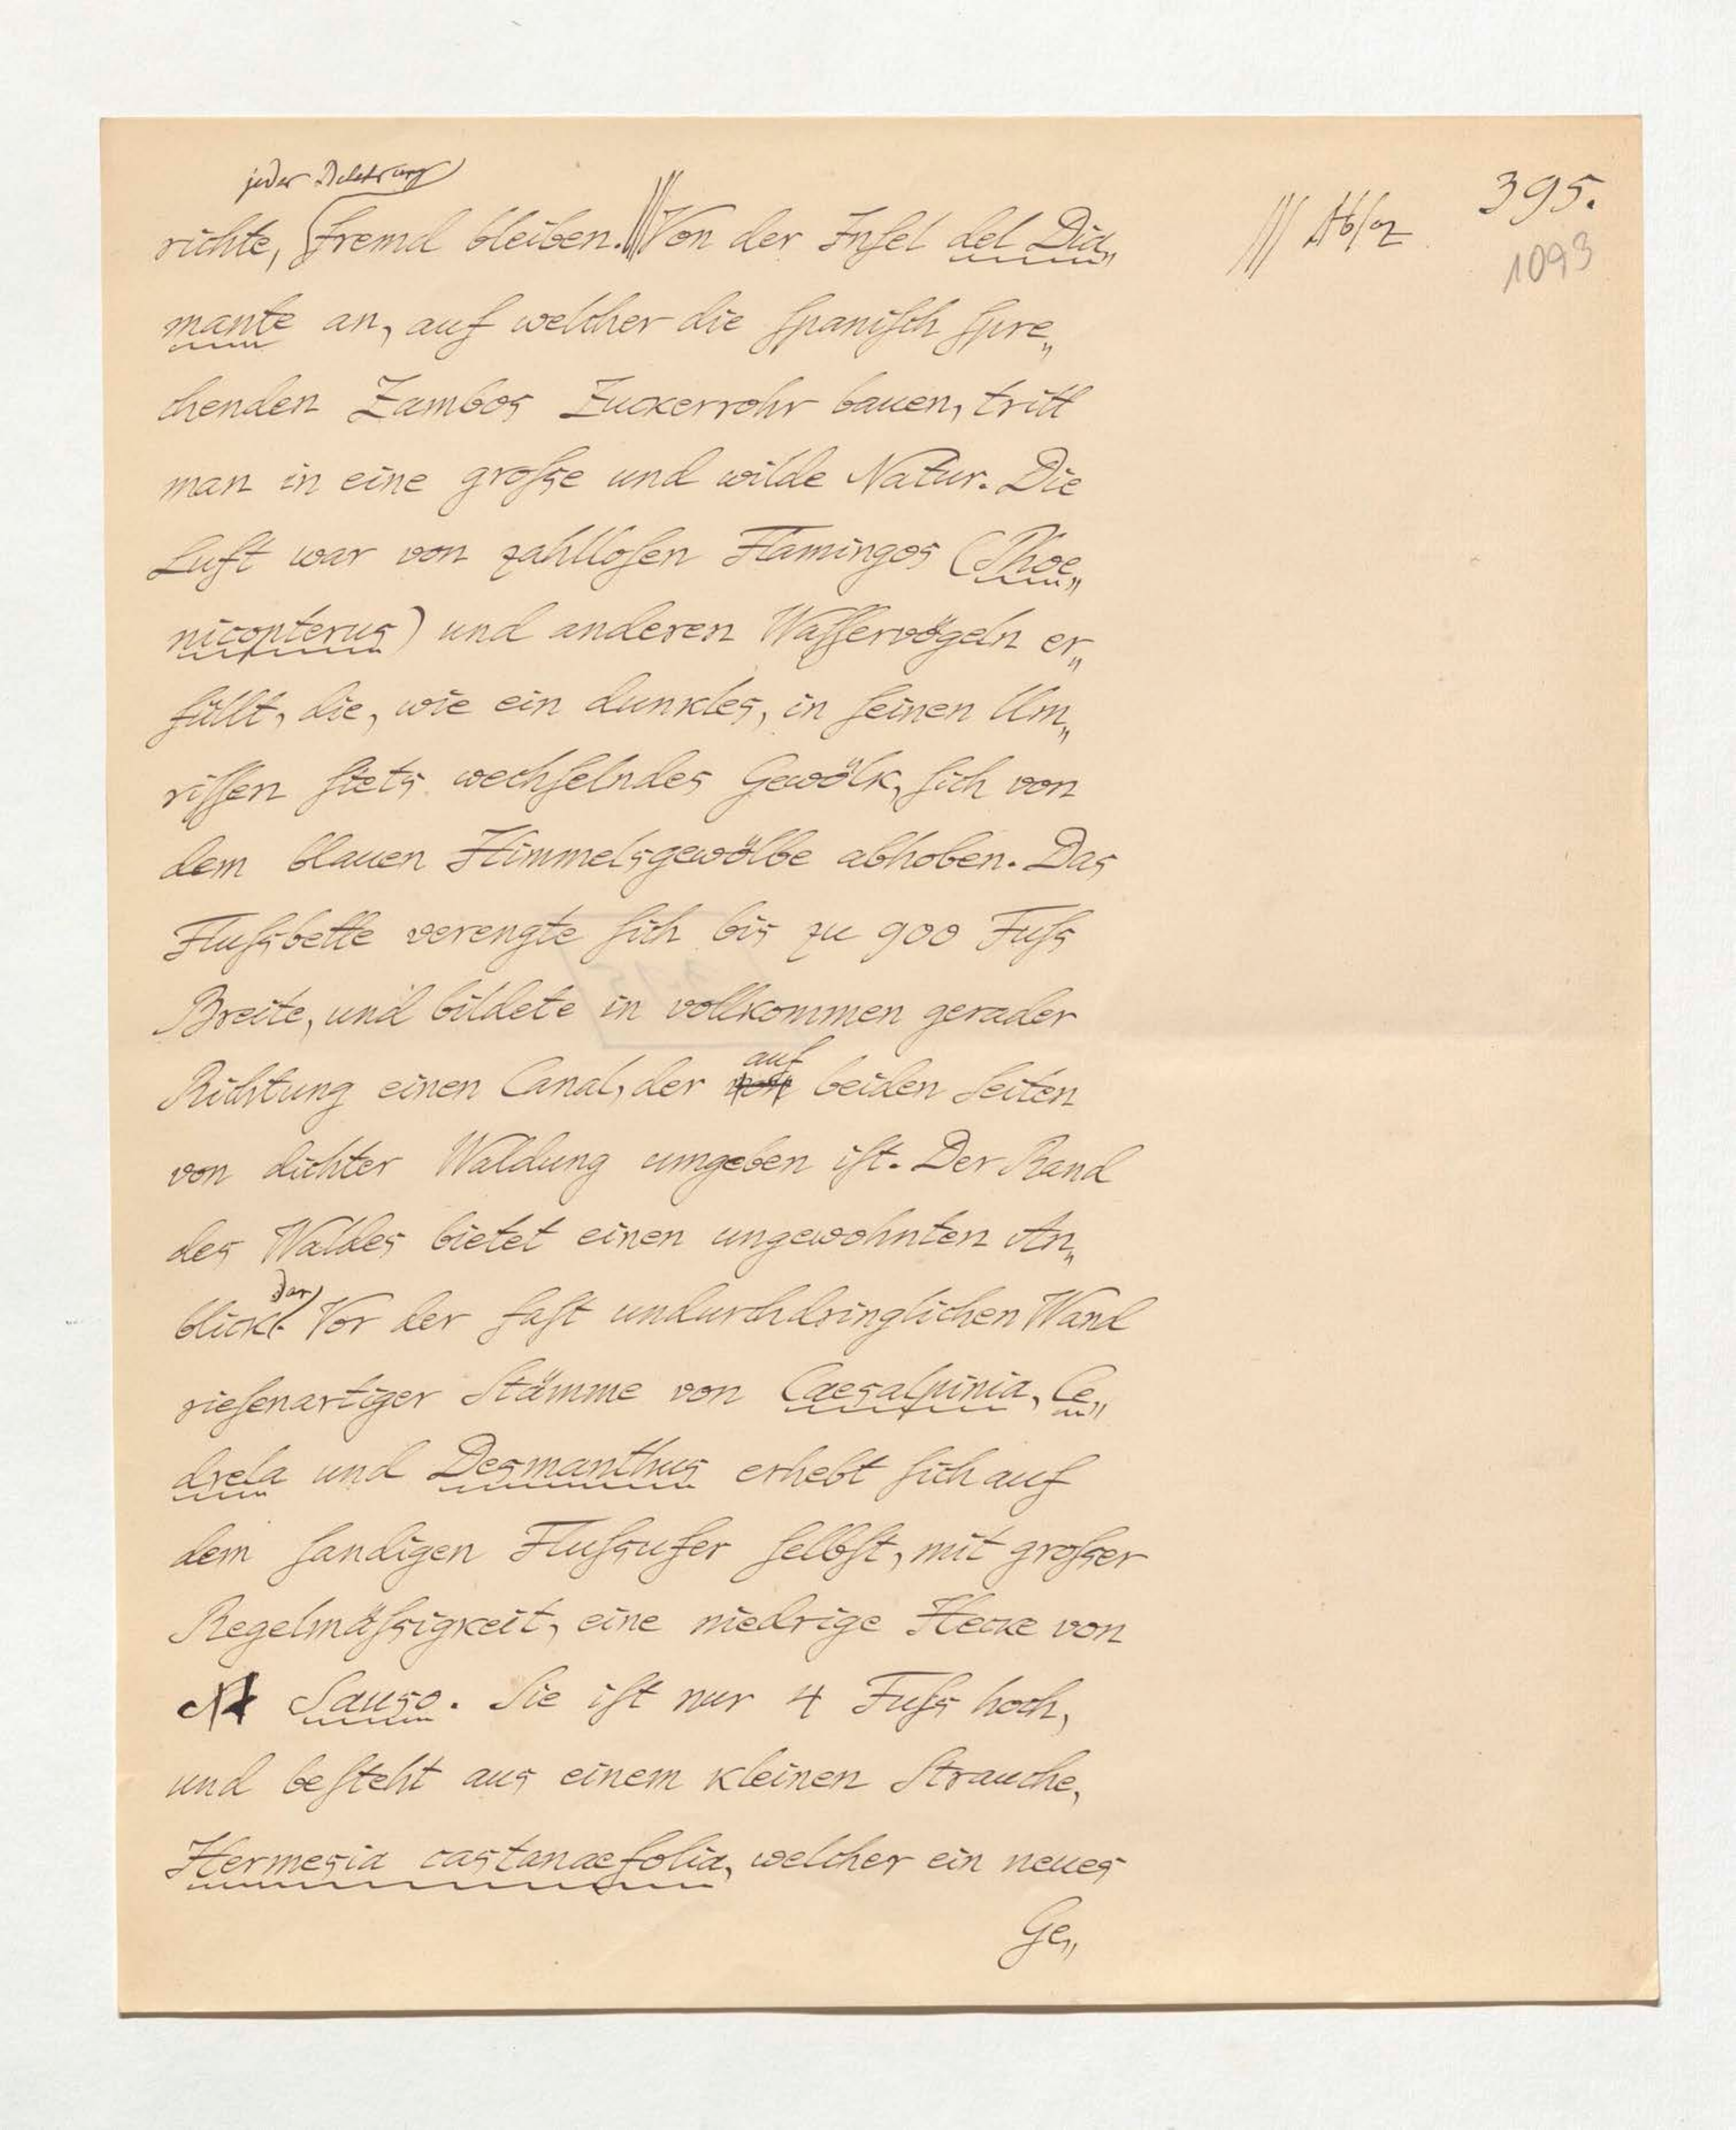 395.
1093
jeder
richte, fremd bleiben. Von der Inſel del Dia„
mante an, auf welcher die ſpaniſch ſpre„
chenden Zambos Zuckerrohr bauen, tritt
man in eine groſse und wilde Natur. Die
Luft war von zahlloſen Flamingos (Phoe„
nicopterus) und anderen Waſſervögeln er„
füllt, die, wie ein dunkles, in ſeinen Um„
riſſen ſtets wechſelndes Gewölk, ſich von
dem blauen Himmelsgewölbe abhoben. Das
Fluſsbette verengte ſich bis zu 900 Fuſs
Breite, und bildete in vollkommen gerader
auf
Richtung einen Canal, der von beiden Seiten
von dichter Waldung umgeben iſt. Der Rand
des Waldes bietet einen ungewohnten An„
dar
blick. Vor der faſt undurchdringlichen Wand
rieſenartiger Stämme von Caesalpinia, Ce„
drela und Desmanthus erhebt ſich auf
dem ſandigen Fluſsufer ſelbſt, mit groſser
Regelmäſsigkeit, eine niedrige Hecke von
Sauso. Sie iſt nur 4 Fuſs hoch,
und beſteht aus einem kleinen Strauche,
Hermesia castanaefolia, welcher ein neues
Ge„